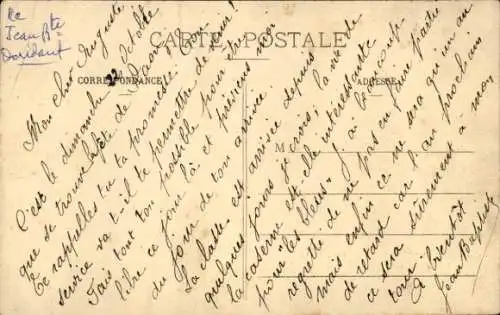 de
Jean Bte
Doridant
CARTE POSTALE
CORRESPONDANCE
ADRESSE
M
Mon cher Auguste
C'est le dimanche 22 Octobre
que se trouve la fête de
Te rappelles tu ta promesse. Ton
service va t-il te permettre de venir?
Fais tout ton possible pour être
libre ce jour là et préviens moi
du jour de ton arrivée.
La classe est arrivée depuis
quelques jours je crois, la vie de
caserne est elle intéressante
pour les bleus. J'ai beaucoup
regretté de ne pas en faire partie
mais enfin ce ne sera qu'un an
de retard car l'an prochain
ce sera sûrement à mon
tour
A bientôt
Jean Baptiste